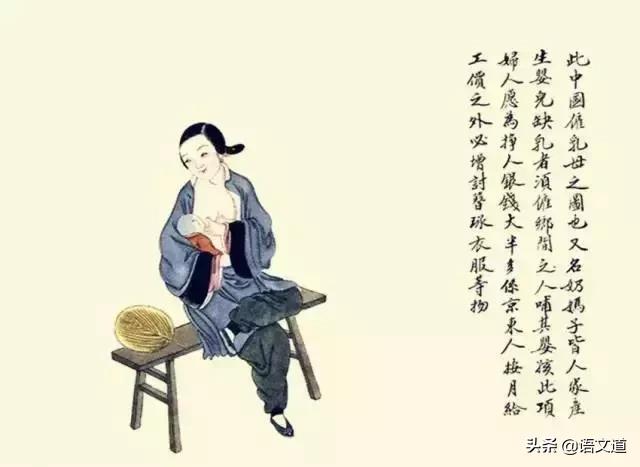 此中國雇乳母之圖也又名奶媽子皆人家產
生嬰兒缺乳者須雇鄉間之人哺其嬰孩此項
婦人愿為掙人銀錢大半多係京東人按月給
工價之外必增討簪珠衣服等物
头条 @语文道